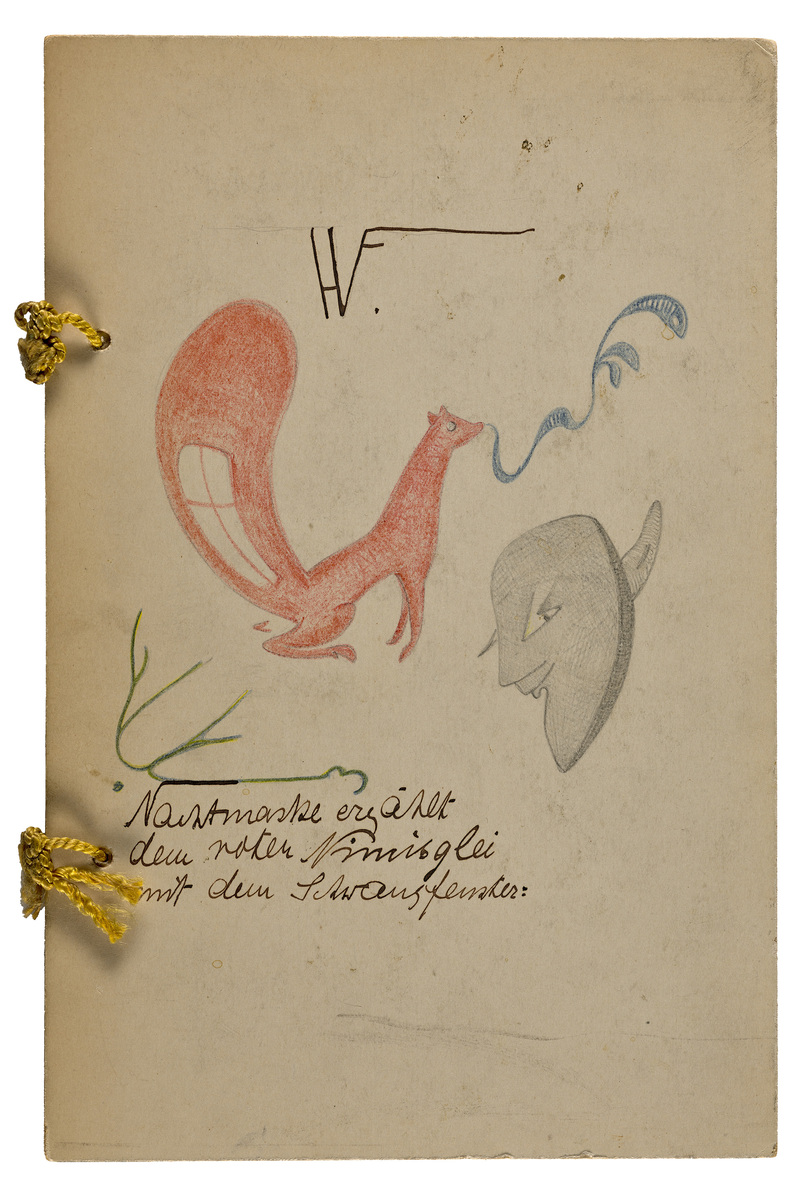 HVF.
Nachtmaske erzählt
dem roten Nimisglei
mit dem Schwanzfenster: